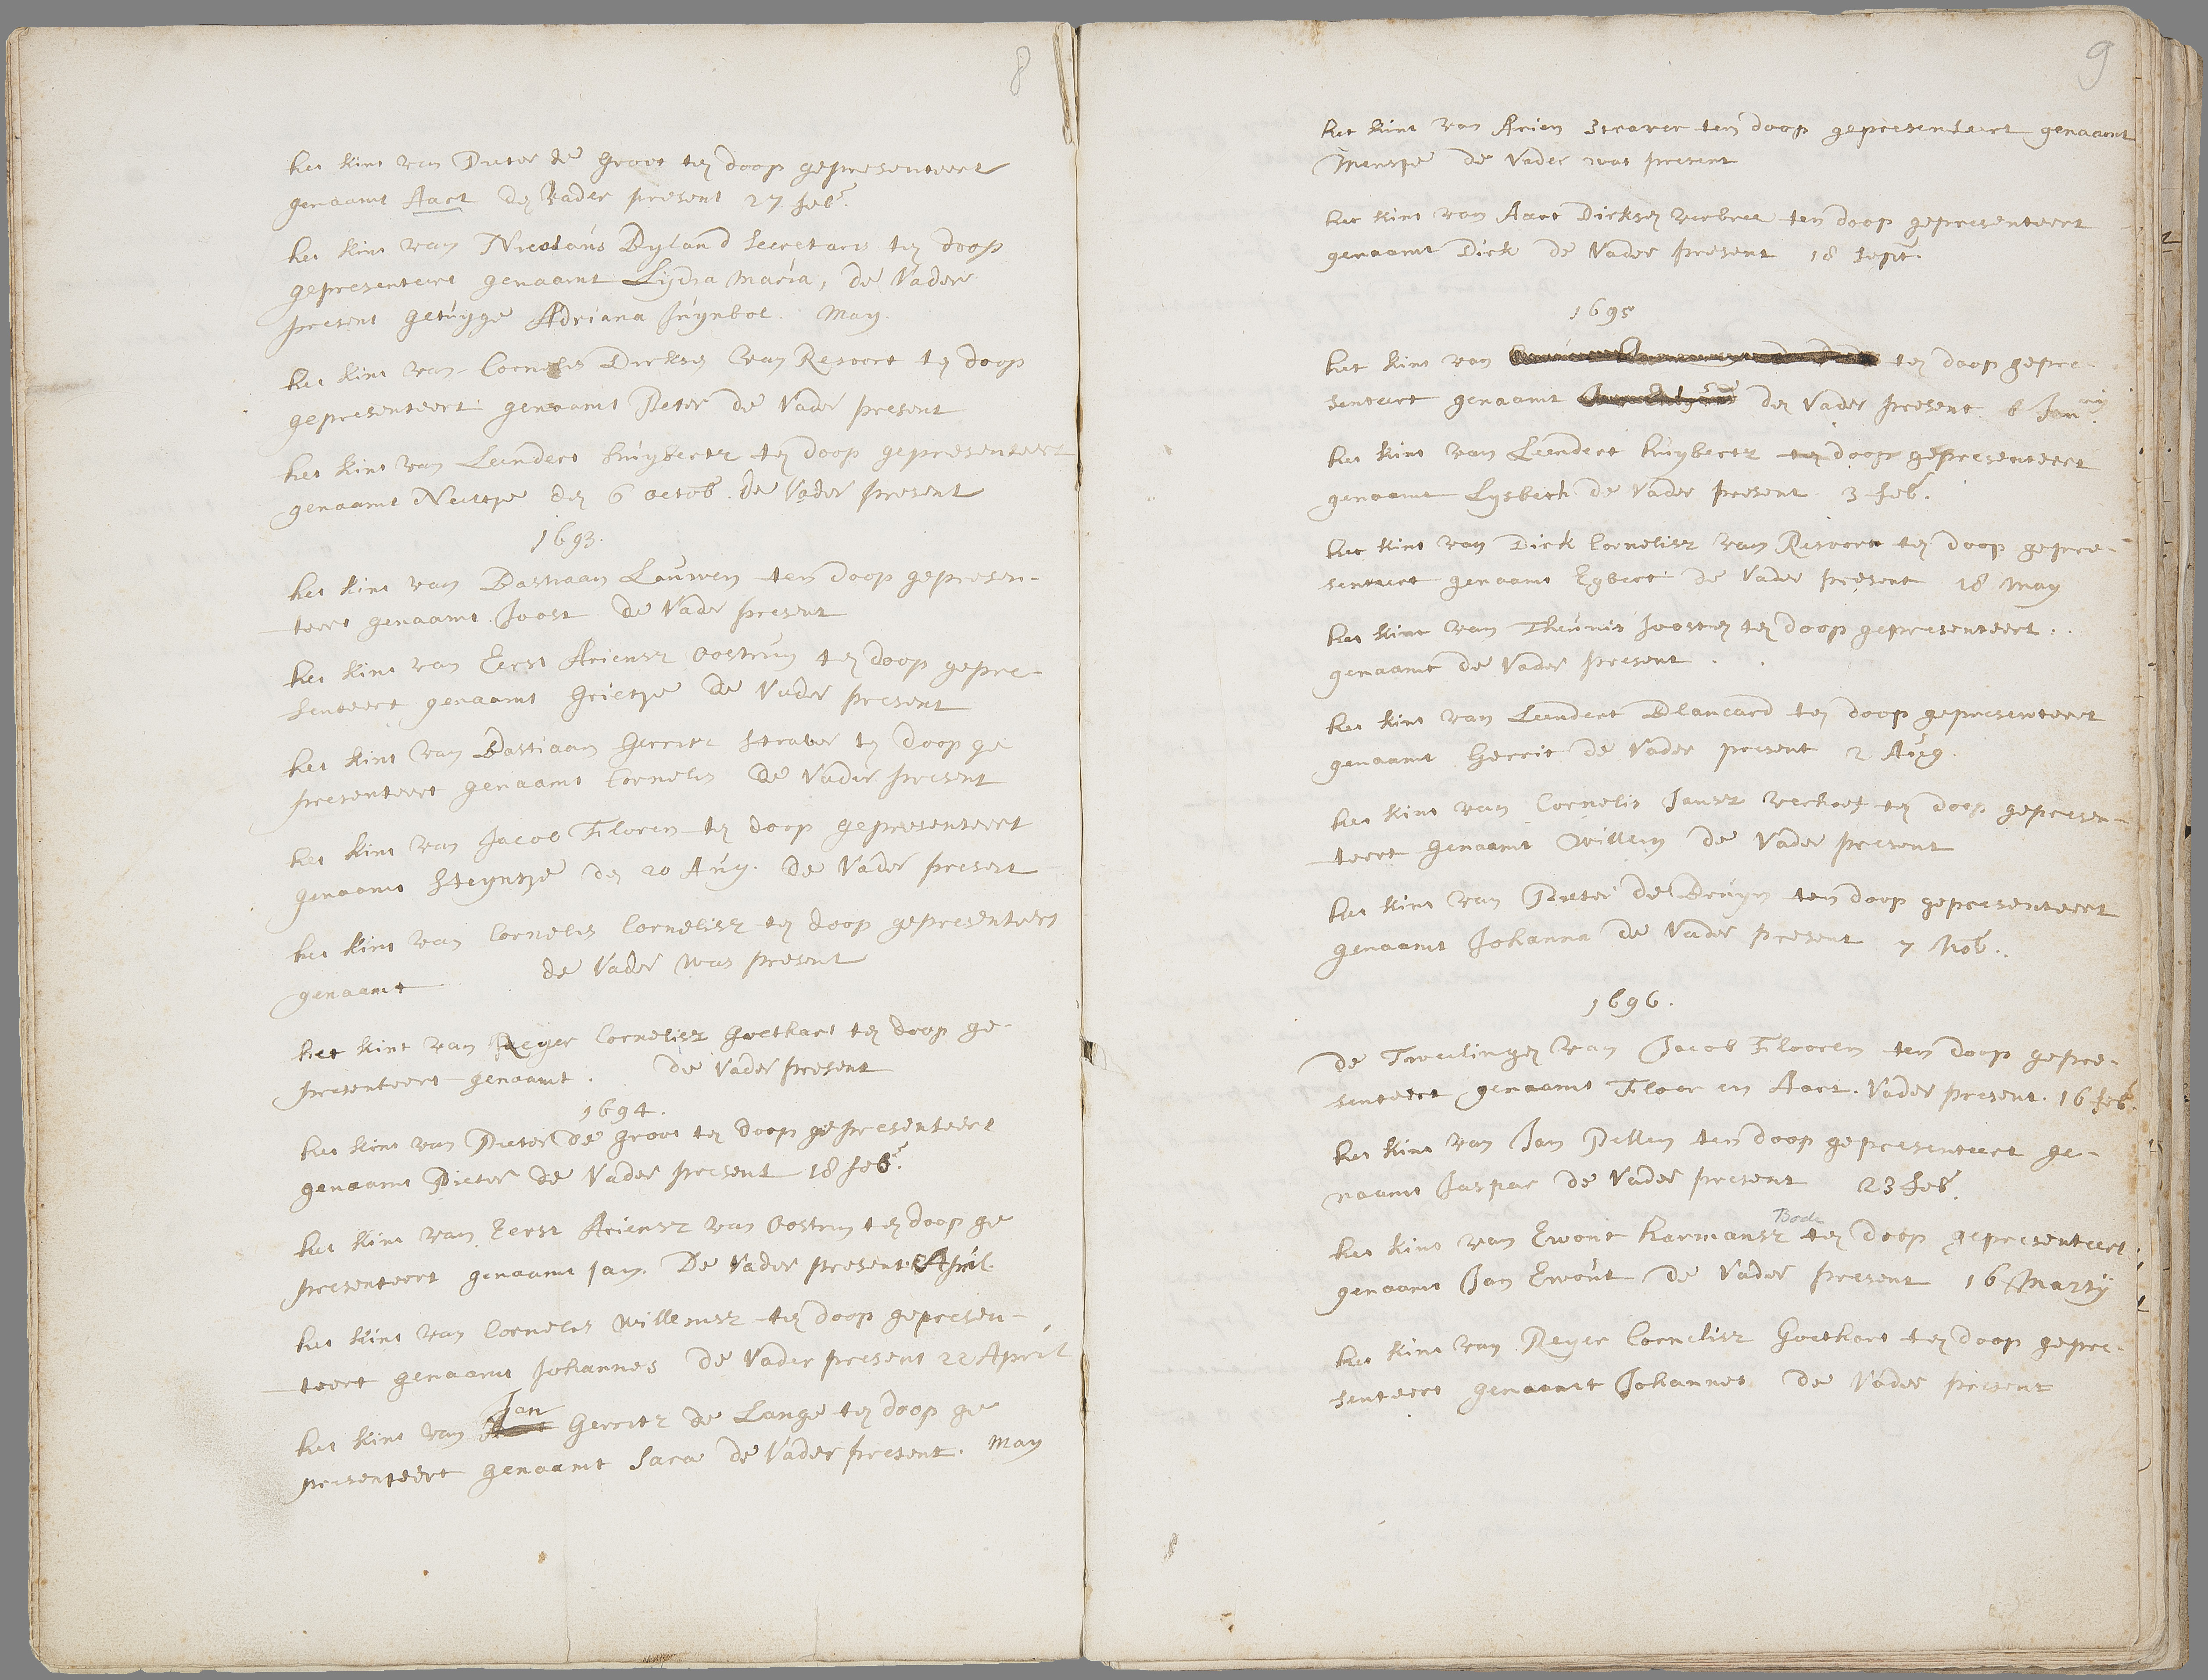 8
het kint van Pieter de Groot ten doop gepresenteert
genaamt Aart de Vader present 27 feb.
het kint van Nicolaus Byland Secretaris ten doop
gepresenteert genaamt Lijdia Maria, de Vader
present getuijge Adriana Juynbol. May.
het kint van Cornelis Dirksen van Resoort ten doop
gepresenteert genaamt Pieter de Vader present
het kint van Leendert huijberts ten doop gepresenteert
genaamt Neeltje den 6 octob. de Vader present
1693.
het kint van Bastiaan Louwen ten doop gepresen-
teert genaamt Joost de Vader present
het kint van Eerst Ariensz Oostrum ten doop gepre-
senteert genaamt Grietje de Vader present
het kint van Bastiaan Gerritsz Straver ten doop ge
presenteert genaamt Cornelis de Vader present
het kint van Jacob Floren ten doop gepresenteert
genaamt Steyntje den 20 Aug. de Vader present
het kint van Cornelis Cornelisz ten doop gepresenteert
genaamt de Vader was present
het kint van Reyer Cornelisz Goethart ten doop ge-
presenteert genaamt. de Vader present
1694.
het kint van Pieter de Groot ten doop gepresenteert
genaamt Pieter de Vader present 18 feb.
het kint van Eerst Ariensz van Oostrum ten doop ge
presenteert genaamt Jan. De Vader present April.
het kint van Cornelis Willemsz ten doop gepresen-
teert genaamt Johannes de Vader present 22 April
het kint van Jan Gerritz de Lange ten doop ge
presenteert genaamt Sara de Vader present. May
9
het kint van Arien Straver ten doop gepresenteert genaamt
Mensje de Vader was present
het kint van Aart Dirksen verbree ten doop gepresenteert
genaamt Dirk de Vader present 18 Sept.
1695
het kint van ten doop gepre-
senteert genaamt den Vader present 6 Jan.
het kint van Leendert huijbertz ten doop gepresenteert
genaamt Lysbeth de Vader present 3 feb.
het kint van Dirk Cornelisz van Resoort ten doop gepre-
senteert genaamt Egbert de Vader present 18 May
het kint van Theunis Joosten ten doop gepresenteert.
genaamt de Vader present.
het kint van Leendert Blancard ten doop gepresenteert
genaamt Gerrit de Vader present 2 Aug.
het kint van Cornelis Jansz verhoef ten doop gepresen-
teert genaamt Willem de Vader present
het kint van Pieter de Bruyn ten doop gepresenteert
genaamt Johanna de Vader present 7 Nob..
1696.
De Tweelingen van Jacob Flooren ten doop gepre-
senteert genaamt Floor en Aart. Vader present. 16 feb.
het kint van Jan Pellen ten doop gepresenteert ge-
naamt Jaspar de Vader present 23 feb.
Bode
het kint van Ewout harmansz ten doop gepresenteert
genaamt Jan Ewout de Vader present 16 Martij
het kint van Reyer Cornelisz Goethart ten doop gepre-
senteert genaamt Johannes de Vader present